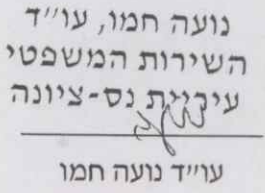 נועה חמו, עו״ד
השירות המשפטי
עיריית נס-ציונה
עו״ד נועה חמו